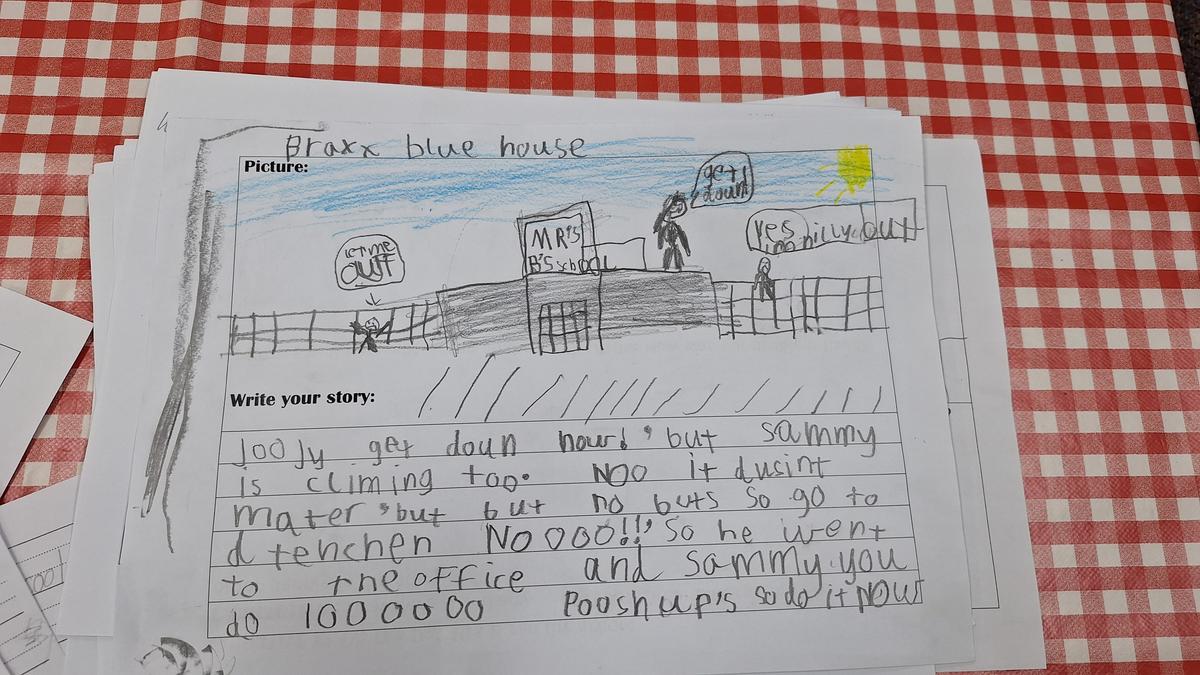 Braxx blue house
Picture:
get
doun
MR'S
B'S school
Yes
out
let me
out
Write your story:
Joojy get doun nowr! 'but sammy
is climing too. NOO it dusint
mater 'but but no buts so go to
d tenchen NOOOO!!' So he went
to the office and sammy.you
do 1000000 Pooshup's so do it NOW